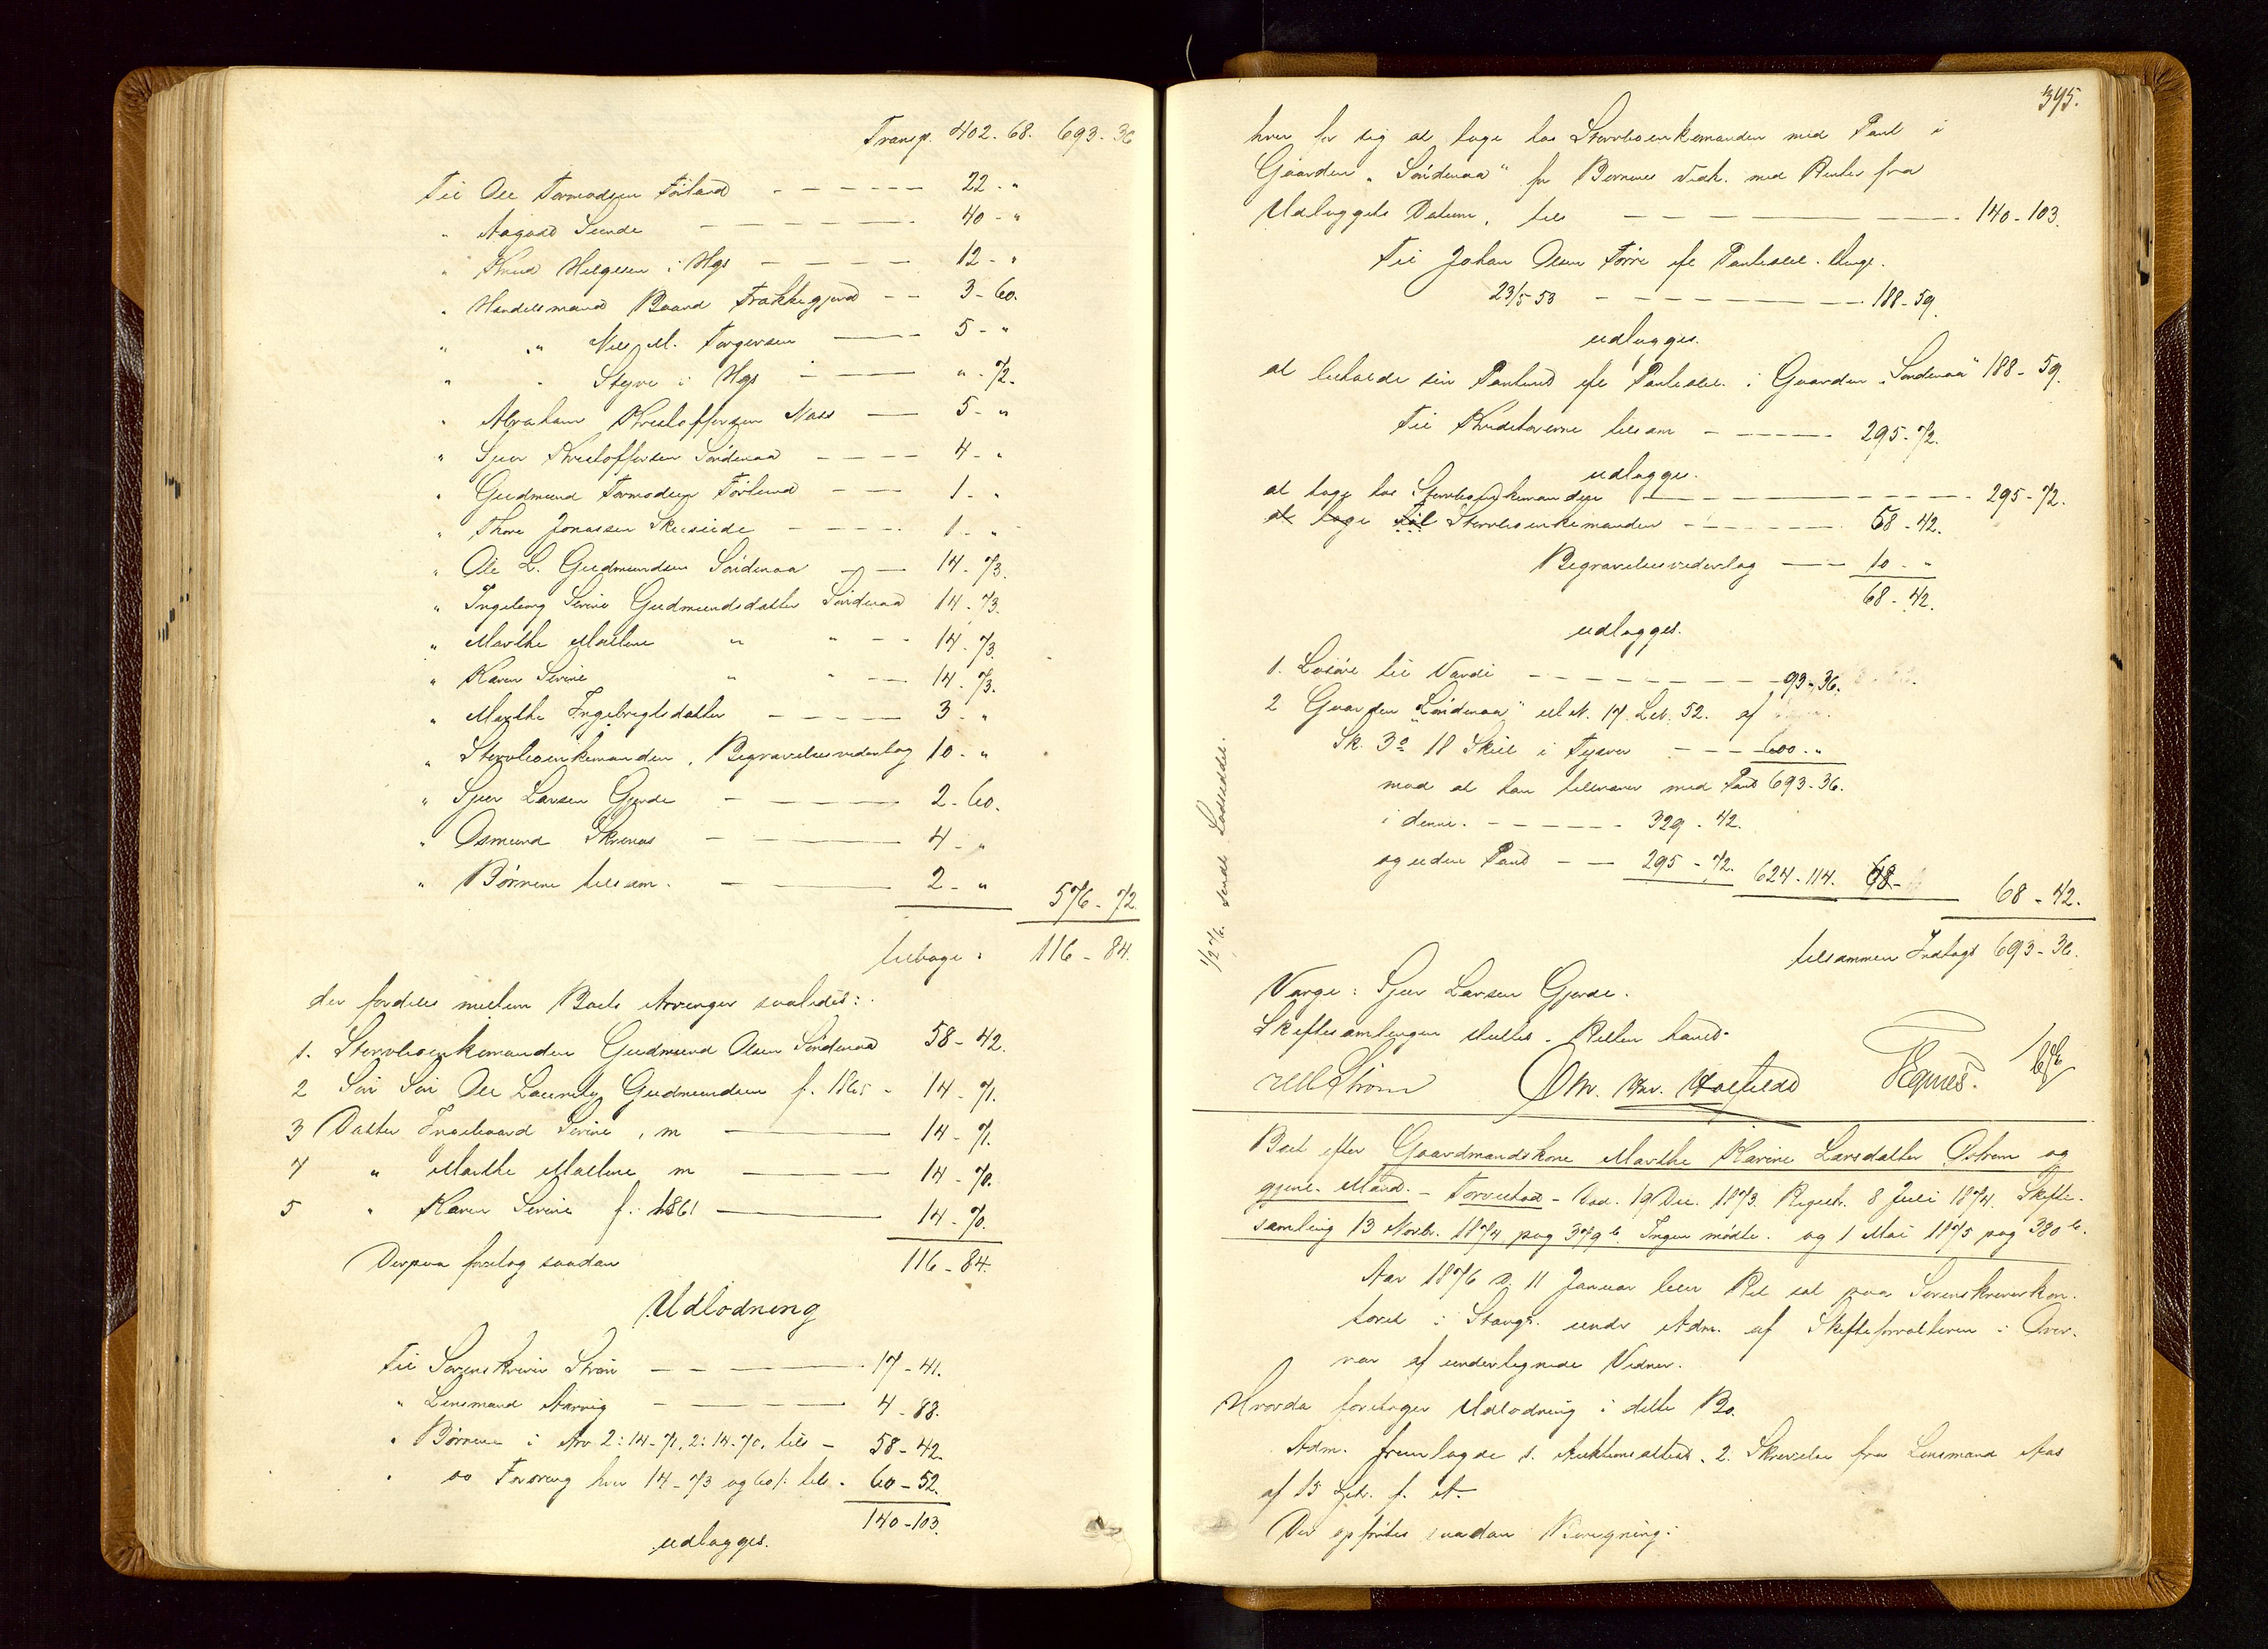 Transp. 402-68. 693-36
Til Ole Tormodsen Förland - - - - - - 22-"
" Aagaad Sunde - - - - - - 40-"
" Knud Helgesen i Hgs - - - - - 12-"
" Handelsmand Baard Frakkagjerd - - 3-60.
" " Nils M. Torgersen - - 5-"
" " Styve i Hgs - - "-72.
" Abraham Kristoffersen Næss - 5-"
" Sjur Kristoffersen Söndenaa - - - - 4-"
" Gudmund Tormodsen Förland - - - 1-"
" Thore Jonassen Skeiseide - - - - 1-"
" Ole L. Gudmundsen Söndenaa - - 14-73.
" Ingeborg Serine Gudmundsdatter Söndenaa 14-73.
" Marthe Malene " " - - 14-73.
" Karen Serine " " - - 14-73.
" Marthe Ingebrigtsdatter - - - - - 3-"
" Stervboenkemanden, Begravelsesvederlag 10-"
" Sjur Larsen Gjerde - - - - - 2-60.
" Osmund Skrenes - - - 4-"
" Börnene tilsam. - - - 2-" 576-72.
tilbage: 116-84.
der fordeles mellem Boets Arvinger saaledes:
1. Stervboenkemanden Gudmund Olsen Söndenaa 58-42.
2 Sön Ole Lauritz Gudmundsen f. 1865 - 14-71.
3 Datter Ingeborg Serine, m - 14-71.
4 " Marthe Malene m - 14-70.
5 " Karen Serine f. 1861 - 14-70.
Derpaa foretog saadan 116-84.
Udlodning
Til Sorenskriver Ström - - - 17-41.
" Lensmand Aarvig - - - - 4-88.
" Börnene i Arv 2: 14-71, 2: 14-70, tils - 58-42.
" do Fordring hver 14-73 og 60 s: tils. 60-52.
140-103.
udlægges.
395.
hver for sig at tage hos Stervboenkemanden med Pant i
Gaarden "Söndenaa" for Bornenes Vedk. med Renter fra
Udlæggets Datum, tils - - - 140-103.
Til Johan Olsen Förre efl Panteobl. thingl.
23/5 53 - - - - 188-59.
udlægges.
at beholde sin Panteret efl Panteobl. i Gaarden "Söndenaa" 188-59.
Til Kreditorerne tilsam - - - - 295-72.
udlægges.
at tage hos Stervboenkemanden - - - 295-72.
at tage Til Stervboenkemanden - - - - 58-42.
Begravelsesvederlag - - 10-"
68-42.
udlægges.
1. Lösöre til Værdi - - - - - - 93-36.
2 Gaarden "Söndenaa" M.N. 17. Lb. 52. af
Sk. 3o 18 Skill i Tysvær - - - 600-"
mod at han tilsvarer med Pant 693-36.
i denne. - - - - - - 329-42.
og uden Pant - - 295-72. 624-114. 68- 68-42.
tilsammen Indtægt 693-36.
1/2 76. sendt Lodsedder.
Værge: Sjur Larsen Gjerde.
Skiftesamlingen sluttes. Retten hævet.
Ström
Boet efter Gaardmandskone Marthe Karine Larsdatter Östrem og
gjenl. Mand. - Torvestad - Död. 19 Dec. 1873. Registr. 8 Juli 1874. Skifte-
samling 13 Novbr. 1874 pag 379 b. Ingen mödte. og 1 Mai 1875 pag 380 b.
Aar 1876 D. 11 Januar blev Ret sat paa Sorenskriverkon-
toret i Stavgr. under Adm. af Skifteforvalteren i Over-
vær af undertegnede Vidner.
Hvorda foretoges Udlodning i dette Bo.
Adm. fremlagde 1. Auktionsattest. 2. Skrivelse fra Lensmand Aas
af 15 f. A.
Der opförtes saadan Beregning: